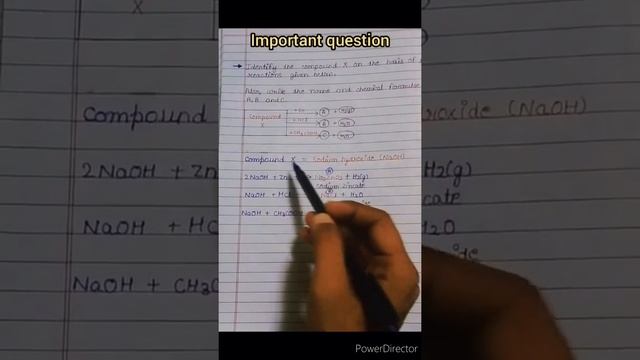 Important question
→ Identify the compound X on the basis of
reactions given below.
Also, write the name and chemical formulae
A, B and C.
Compound
X
A
B
C
Compound X = Sodium hydroxide (NaOH)
A
2NaOH + Zn Na2ZnO2 + H2(g)
Sodium zincate
B
NaOH + HCl NaCl + H2O
NaOH + CH3COO
Compound
oxide (NaOH)
2NaOH + Zn
H2(g)
cate
NaOH + HC
H2O
ide
NaOH + CH3C
PowerDirector